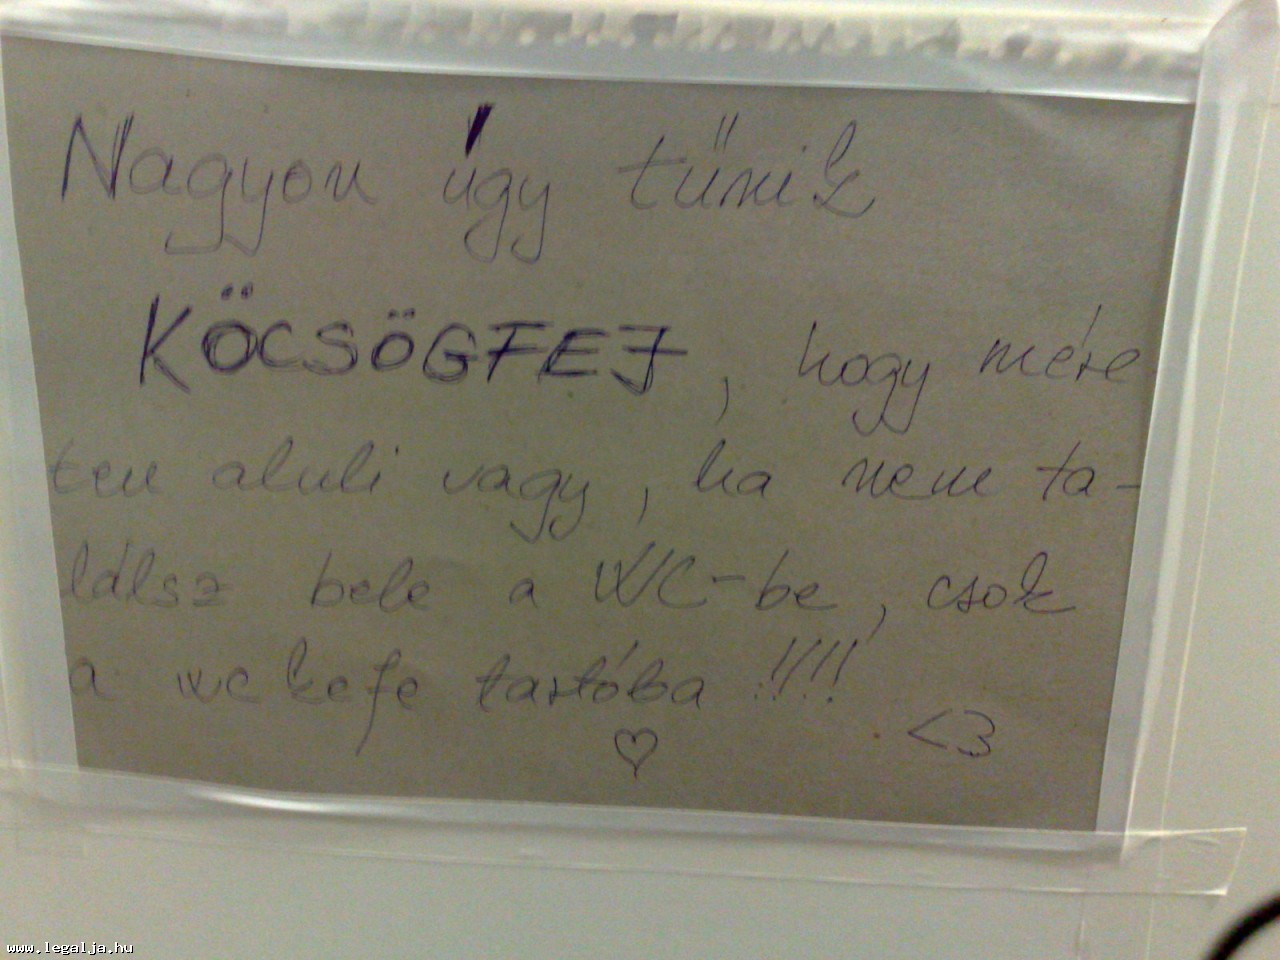 Nagyon úgy tűnik
KÖCSÖGFEJ, hogy mére
ten aluli vagy, ha nem ta-
lálsz bele a WC-be, csak
a wc kefe tartóba !!!!
♡ <3
www.legalja.hu